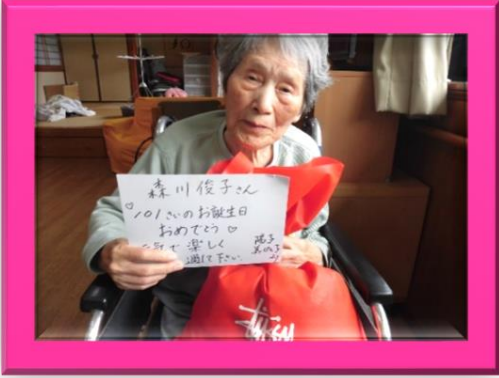 森川俊子さん
♡101さいのお誕生日
おめでとう♡
元気で楽しく
過して下さい
陽子